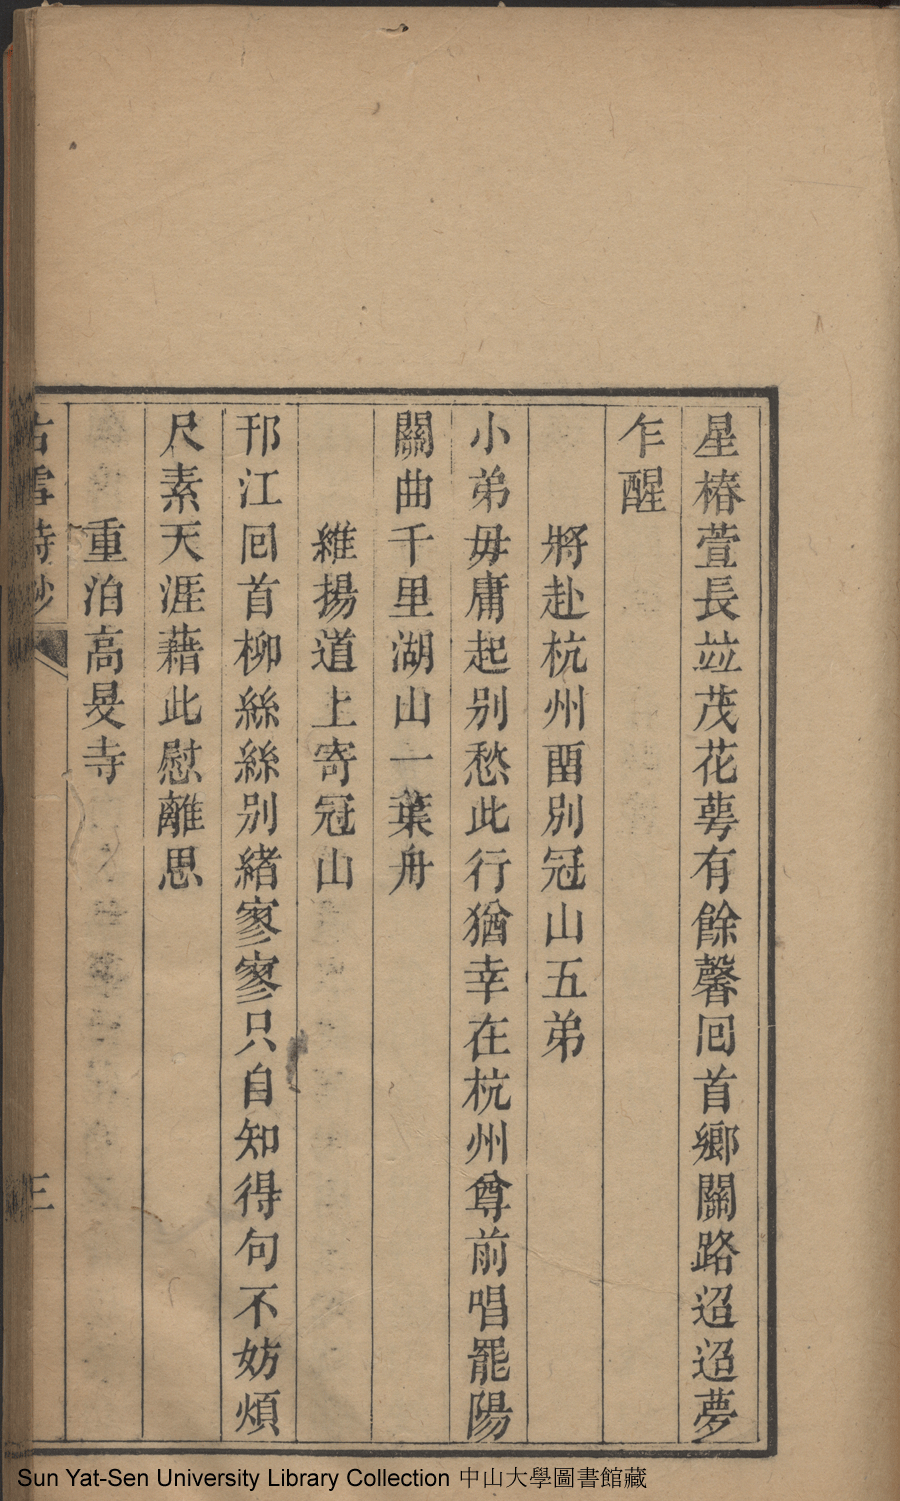 星椿萱長竝茂花蕚有餘馨囘首鄉關路迢迢夢
乍醒
將赴杭州畱別冠山五弟
小弟毋庸起別愁此行猶幸在杭州尊前唱罷陽
關曲千里湖山一葉舟
維揚道上寄冠山
邗江囘首柳絲絲別緒寥寥只自知得句不妨煩
尺素天涯藉此慰離思
重泊高旻寺
古雪詩鈔
三
Sun Yat-Sen University Library Collection 中山大學圖書館藏